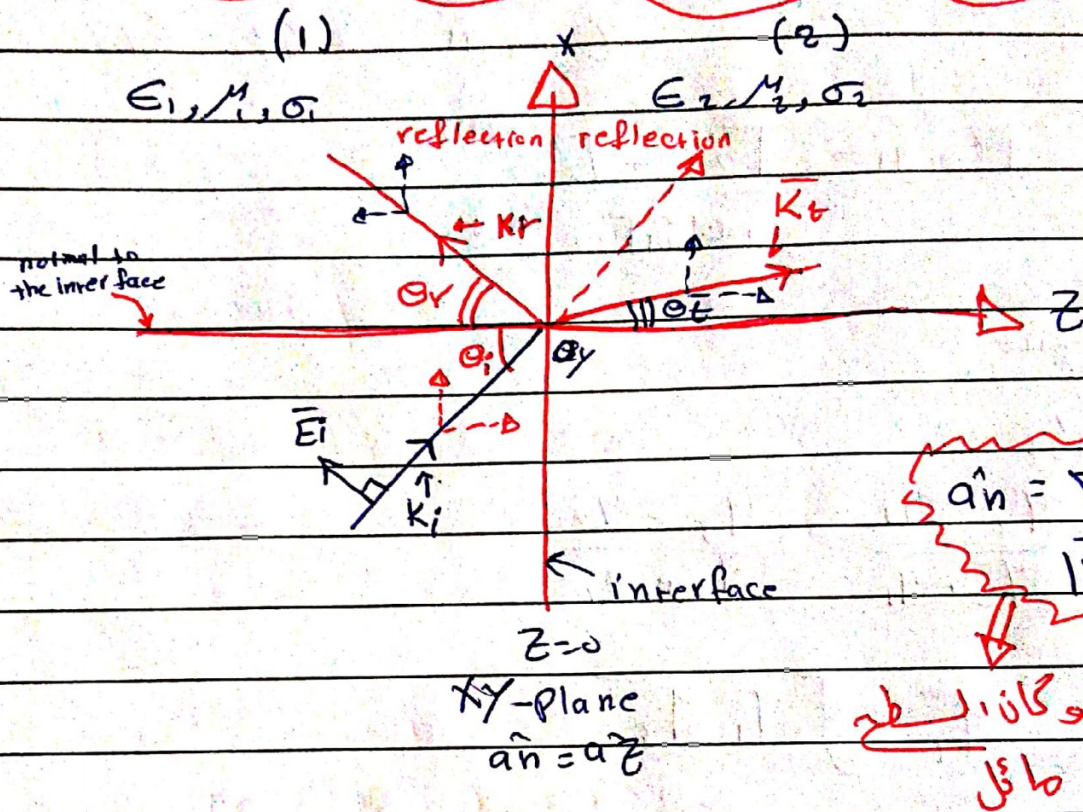 (1) x (2)
ϵ₁, μ₁, σ₁ ϵ₂, μ₂, σ₂
reflection reflection
K̄t
← Kr
normal to
the inrerface
θr
θt
Z
θi
y
Ēi
Ki
ân =
← inrerface
Z=0
XY-plane
ân = âz
كان السطح
مائل